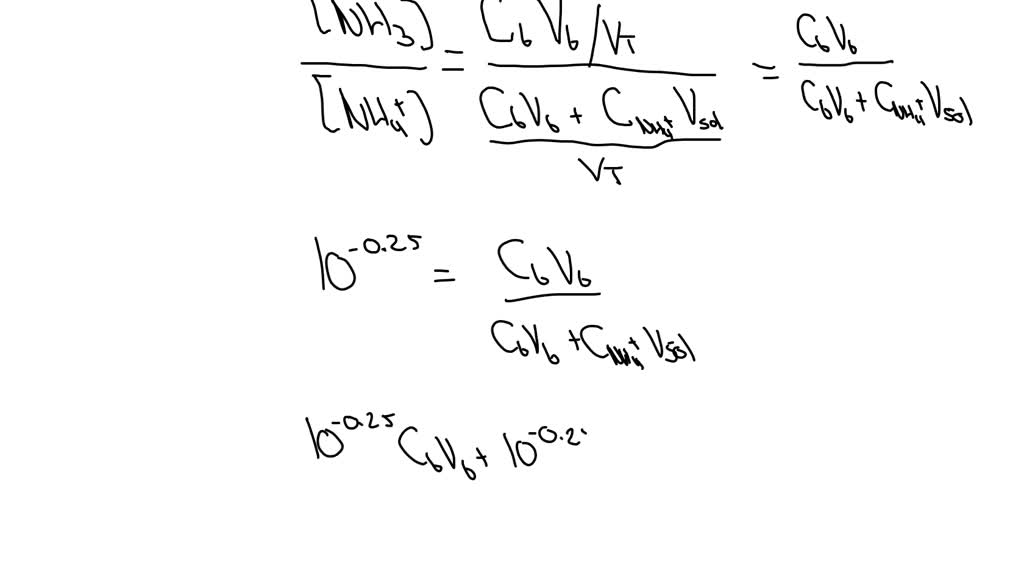 [NH3] / [NH4+] = (CbVb/VT) / ((CbVb + CNH4+ Vsol) / VT) = CbVb / (CbVb + CNH4+ Vsol)
10^-0.25 = CbVb / (CbVb + CNH4+ Vsol)
10^-0.25 CbVb + 10^-0.2